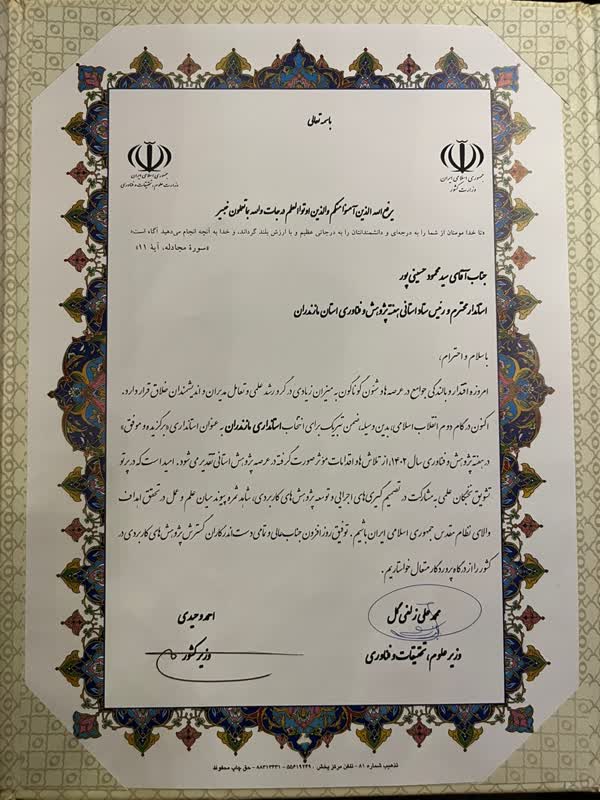 باسمه تعالی
جمهوری اسلامی ایران
وزارت کشور
جمهوری اسلامی ایران
وزارت علوم، تحقیقات و فناوری
یرفع الله الذین آمنوا منکم والذین اوتوا العلم درجات والله بما تعملون خبیر
«تا خدا مومنان از شما را به درجه‌ای و دانشمندانتان را به درجاتی عظیم و با ارزش بلند گرداند، و خدا به آنچه انجام می‌دهید آگاه است»
«سورهٔ مجادله، آیهٔ ۱۱»
جناب آقای سید محمود حسینی پور
استاندار محترم و رئیس ستاد استانی هفته پژوهش و فناوری استان مازندران
با سلام و احترام،
امروزه اقتدار و بالندگی جوامع در عرصه‌ها و شئون گوناگون به میزان زیادی در گرو رشد علمی و تعامل مدیران و اندیشمندان خلاق قرار دارد.
اکنون در گام دوم انقلاب اسلامی، بدین وسیله، ضمن تبریک برای انتخاب استانداری مازندران به عنوان استانداری «برگزیده و موفق»
در هفته پژوهش و فناوری سال ۱۴۰۲، از تلاش‌ها و اقدامات مؤثر صورت گرفته در عرصه پژوهش استانی تقدیر می‌شود. امید است که در پرتو
تشویق نخبگان علمی به مشارکت در تصمیم گیری‌های اجرایی و توسعه پژوهش‌های کاربردی، شاهد ثمره پیوند میان علم و عمل در تحقق اهداف
والای نظام مقدس جمهوری اسلامی ایران باشیم. توفیق روزافزون جنابعالی و تمامی دست اندرکاران گسترش پژوهش‌های کاربردی در
کشور را از درگاه پروردگار متعال خواستاریم.
محمد علی زلفی گل
وزیر علوم، تحقیقات و فناوری
احمد وحیدی
وزیر کشور
تذهیب شماره ۸۱ - تلفن مرکز پخش: ۵۵۶۱۹۲۴۹ - ۸۸۳۱۳۴۳۱ - حق چاپ محفوظ